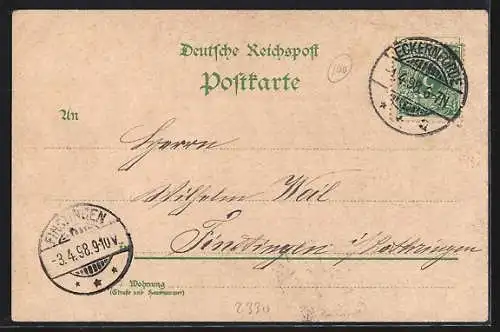 Deutsche Reichspost
Postkarte
100
ECKERNFÖRDE
3.4.98.6-7N
An
Herrn
Wilhelm Weil
Finstingen i/Lothringen
FINSTINGEN
-3.4.98.9-10V.
Wohnung
(Straße und Hausnummer)
2330